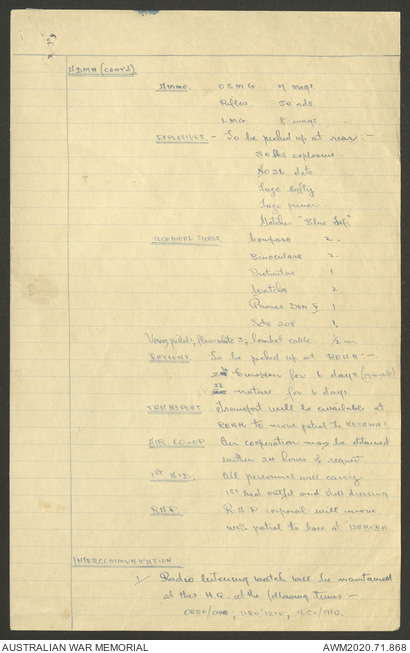 ADMN (CONT'D).
AMMO. OSMG 7 mags
Rifles 50 rds
LMG 8 mags
EXPLOSIVES - To be picked up at rear :-
50 lbs explosive
No 36 dets
Fuze safty
Fuze primer
Matches
TECHNICAL STORES. Compass 2.
Binoculars 2.
Protractor 1
Watch 2
Phones DON V 1
Sets 208 1.
pistol, 3, cable
RATIONS. To be picked up at REAR :-
European for 6 days
native for 6 days
TRANSPORT Transport will be available at
REAR to move patrol to
AIR CO-OP Air cooperation may be obtained
within 24 hours of request
1ST AID. All personnel will carry
1st aid outfit and shell dressing
corporal will move
with patrol to base at
INTERCOMMUNICATION
1/ Radio listening watch will be maintained
at this H.Q. at the following times :-
1150/1210,
AUSTRALIAN WAR MEMORIAL AWM2020.71.868